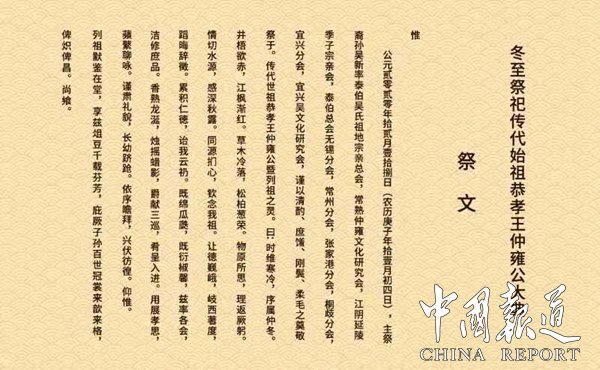 冬至祭祀传代始祖恭孝王仲雍公大典
祭文
惟
公元贰零贰零年拾贰月壹拾捌日（农历庚子年拾壹月初四日），主祭
裔孙吴新率泰伯吴氏祖地宗亲总会，常熟仲雍文化研究会，江阴延陵
季子宗亲会，泰伯总会无锡分会，常州分会，张家港分会，桐歧分会，
宜兴分会，宜兴吴文化研究会，谨以清酌、庶馐、刚鬣、柔毛之奠敬
祭于。传代世祖恭孝王仲雍公暨列祖之灵。曰：时维寒冷，序属仲冬。
井梧欲赤，江枫渐红。草木冷落，松柏葱荣。物原所思，理返厥躬。
情切水源，感深秋露。同源扪心，钦念我祖。让德巍峨，岐西著度，
蹈晦辞徵。累积仁德，诒我云礽。既绵瓜瓞，既衍椒馨，兹率各会，
洁修庶品。香熟龙涎，烛摇蜡影，爵献三巡，肴呈入进。用展孝思，
蘋蘩聊咏。谨肃礼貌，长幼跻跄。依序瞻拜，兴伏彷徨。仰惟。
列祖默鉴在堂，享兹俎豆千载芬芳，庇厥子孙百世冠裳来歆来格，
俾炽俾昌。尚飨。
中国报道
CHINA REPORT